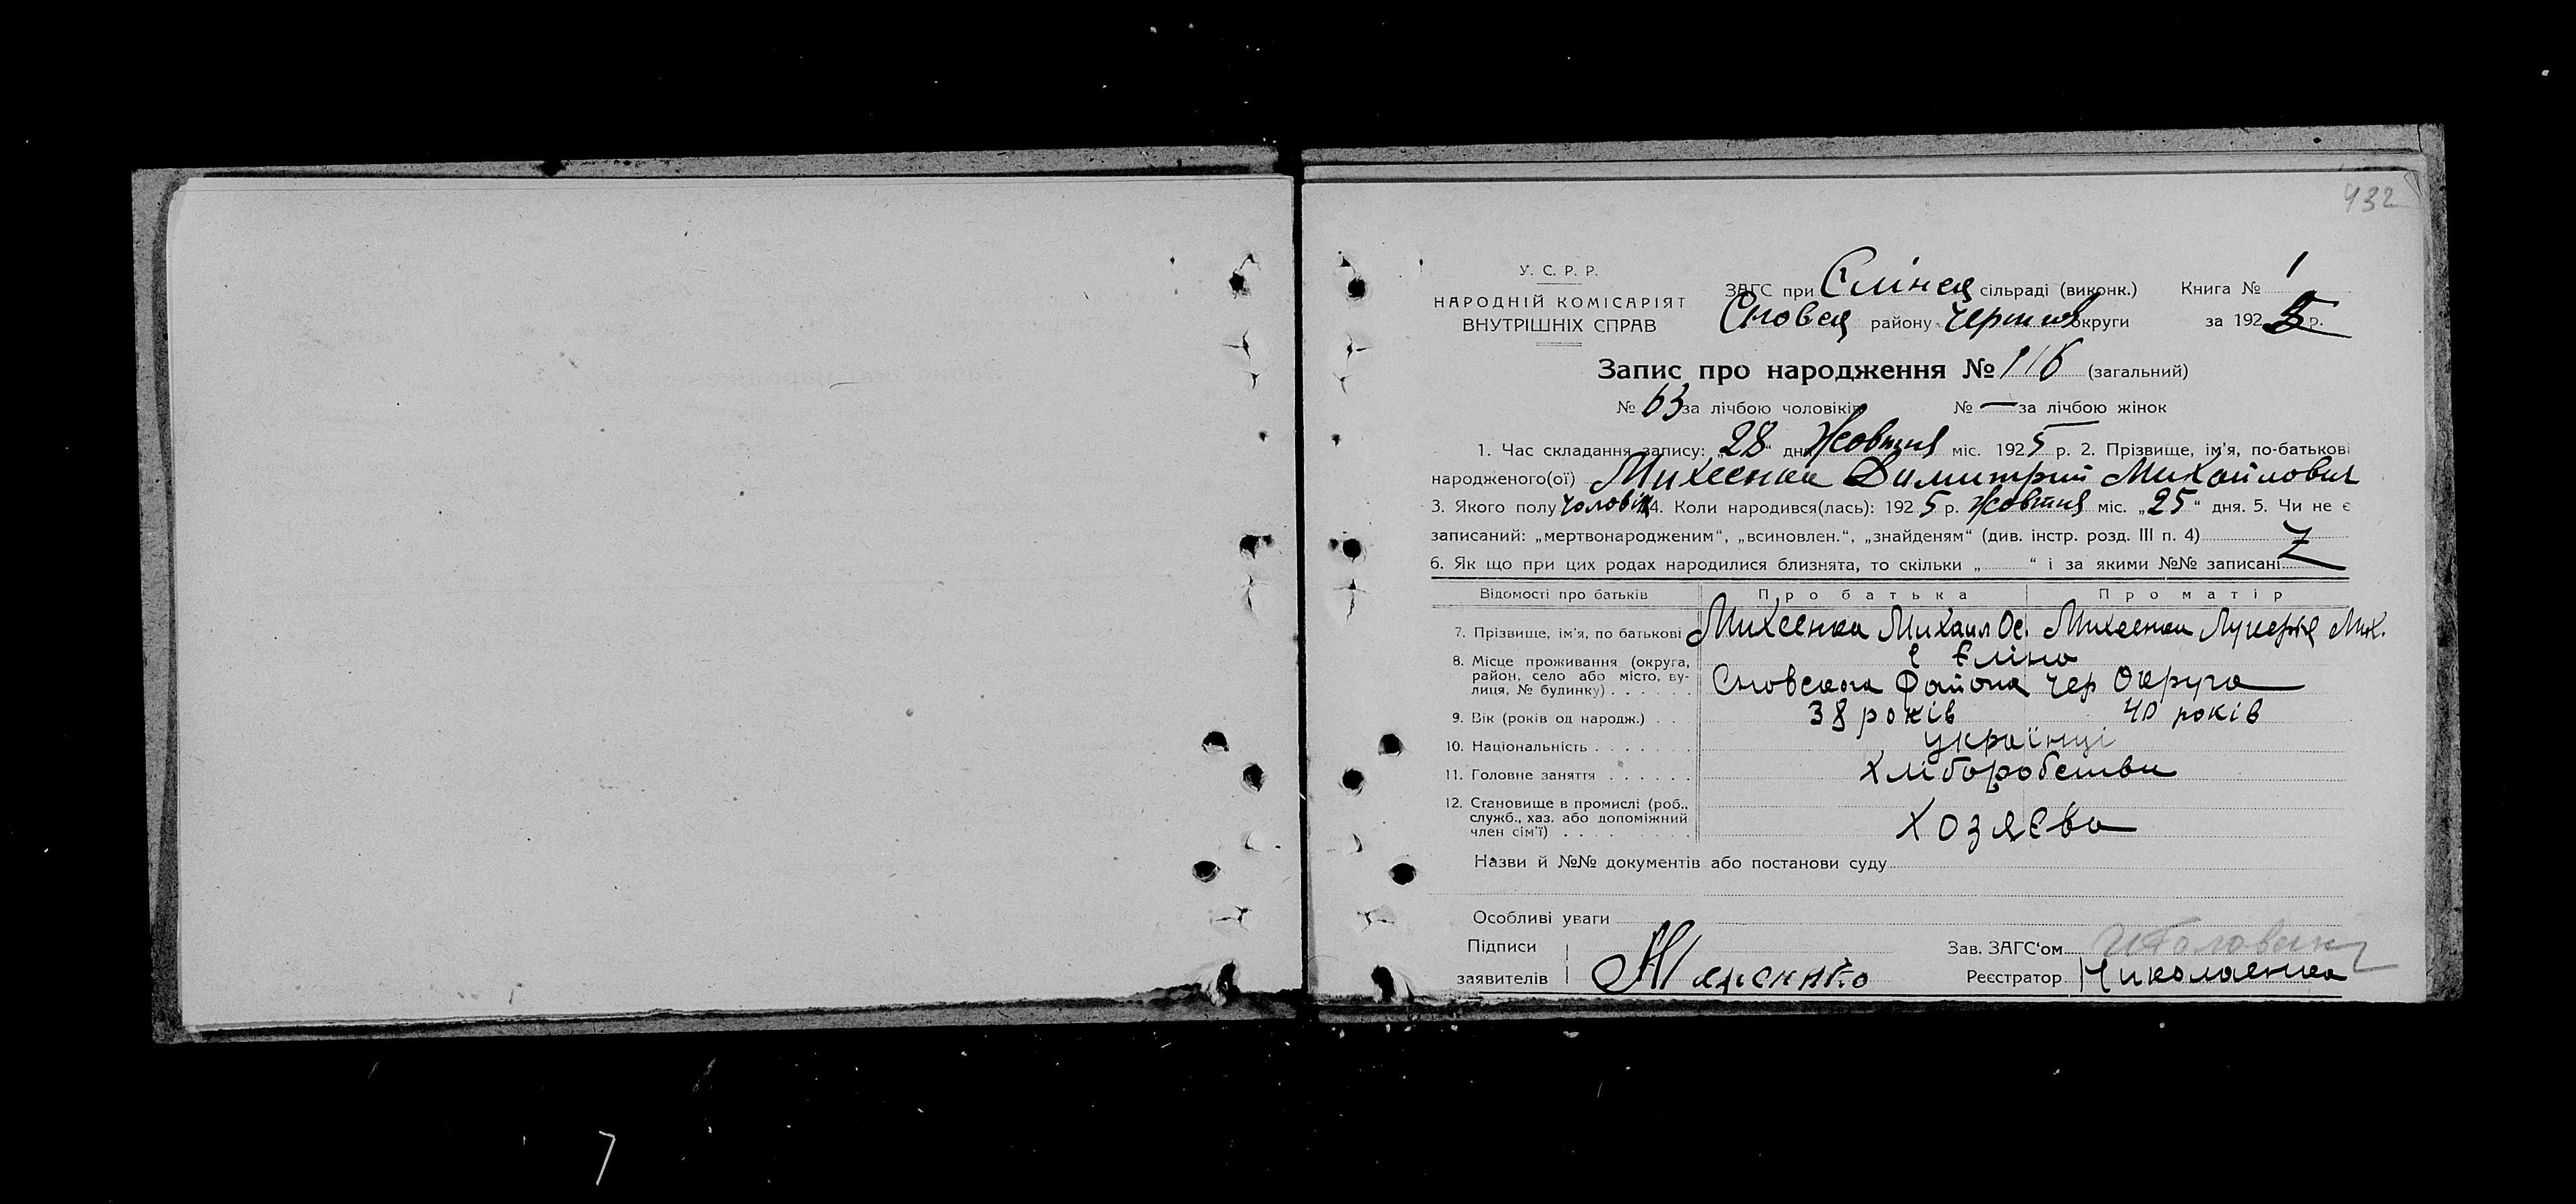 432
У. С. Р. Р.
НАРОДНІЙ КОМІСАРІЯТ
ВНУТРІШНІХ СПРАВ
ЗАГС при Єлінск сільраді (виконк.) Книга № 1
Сновск району Черниговокруги за 1925 р.
Запис про народження № 116 (загальний)
№ 63 за лічбою чоловіків № — за лічбою жінок
1. Час складання запису: „28“ дня Жовтня міс. 1925 р. 2. Прізвище, ім’я, по-батькові
народженого(ої) Михеенка Димитрий Михайлович
3. Якого полу чоловік 4. Коли народився(лась): 1925 р. Жовтня міс. „25“ дня. 5. Чи не є
записаний: „мертвонародженим“, „всиновлен.“, „знайденям“ (див. інстр. розд. III п. 4)
6. Як що при цих родах народилися близнята, то скільки „ “ і за якими №№ записані
Відомості про батьків Про батька Про матір
7. Прізвище, ім’я, по батькові Михеенка Михаил Ос. Михеенка Лукерія Мих.
8. Місце проживання (округа, район, село або місто, вулиця, № будинку) с Єліно
Сновскога Района Чер Округа
9. Вік (років од народж.) 38 років 40 років
10. Національність українці
11. Головне заняття хліборобстви
12. Становище в промислі (роб., служб., хаз. або допоміжний член сім’ї) хозяєва
Назви й №№ документів або постанови суду
Особливі уваги
Підписи
Зав. ЗАГС‘ом
заявителів
Реєстратор Николаенка